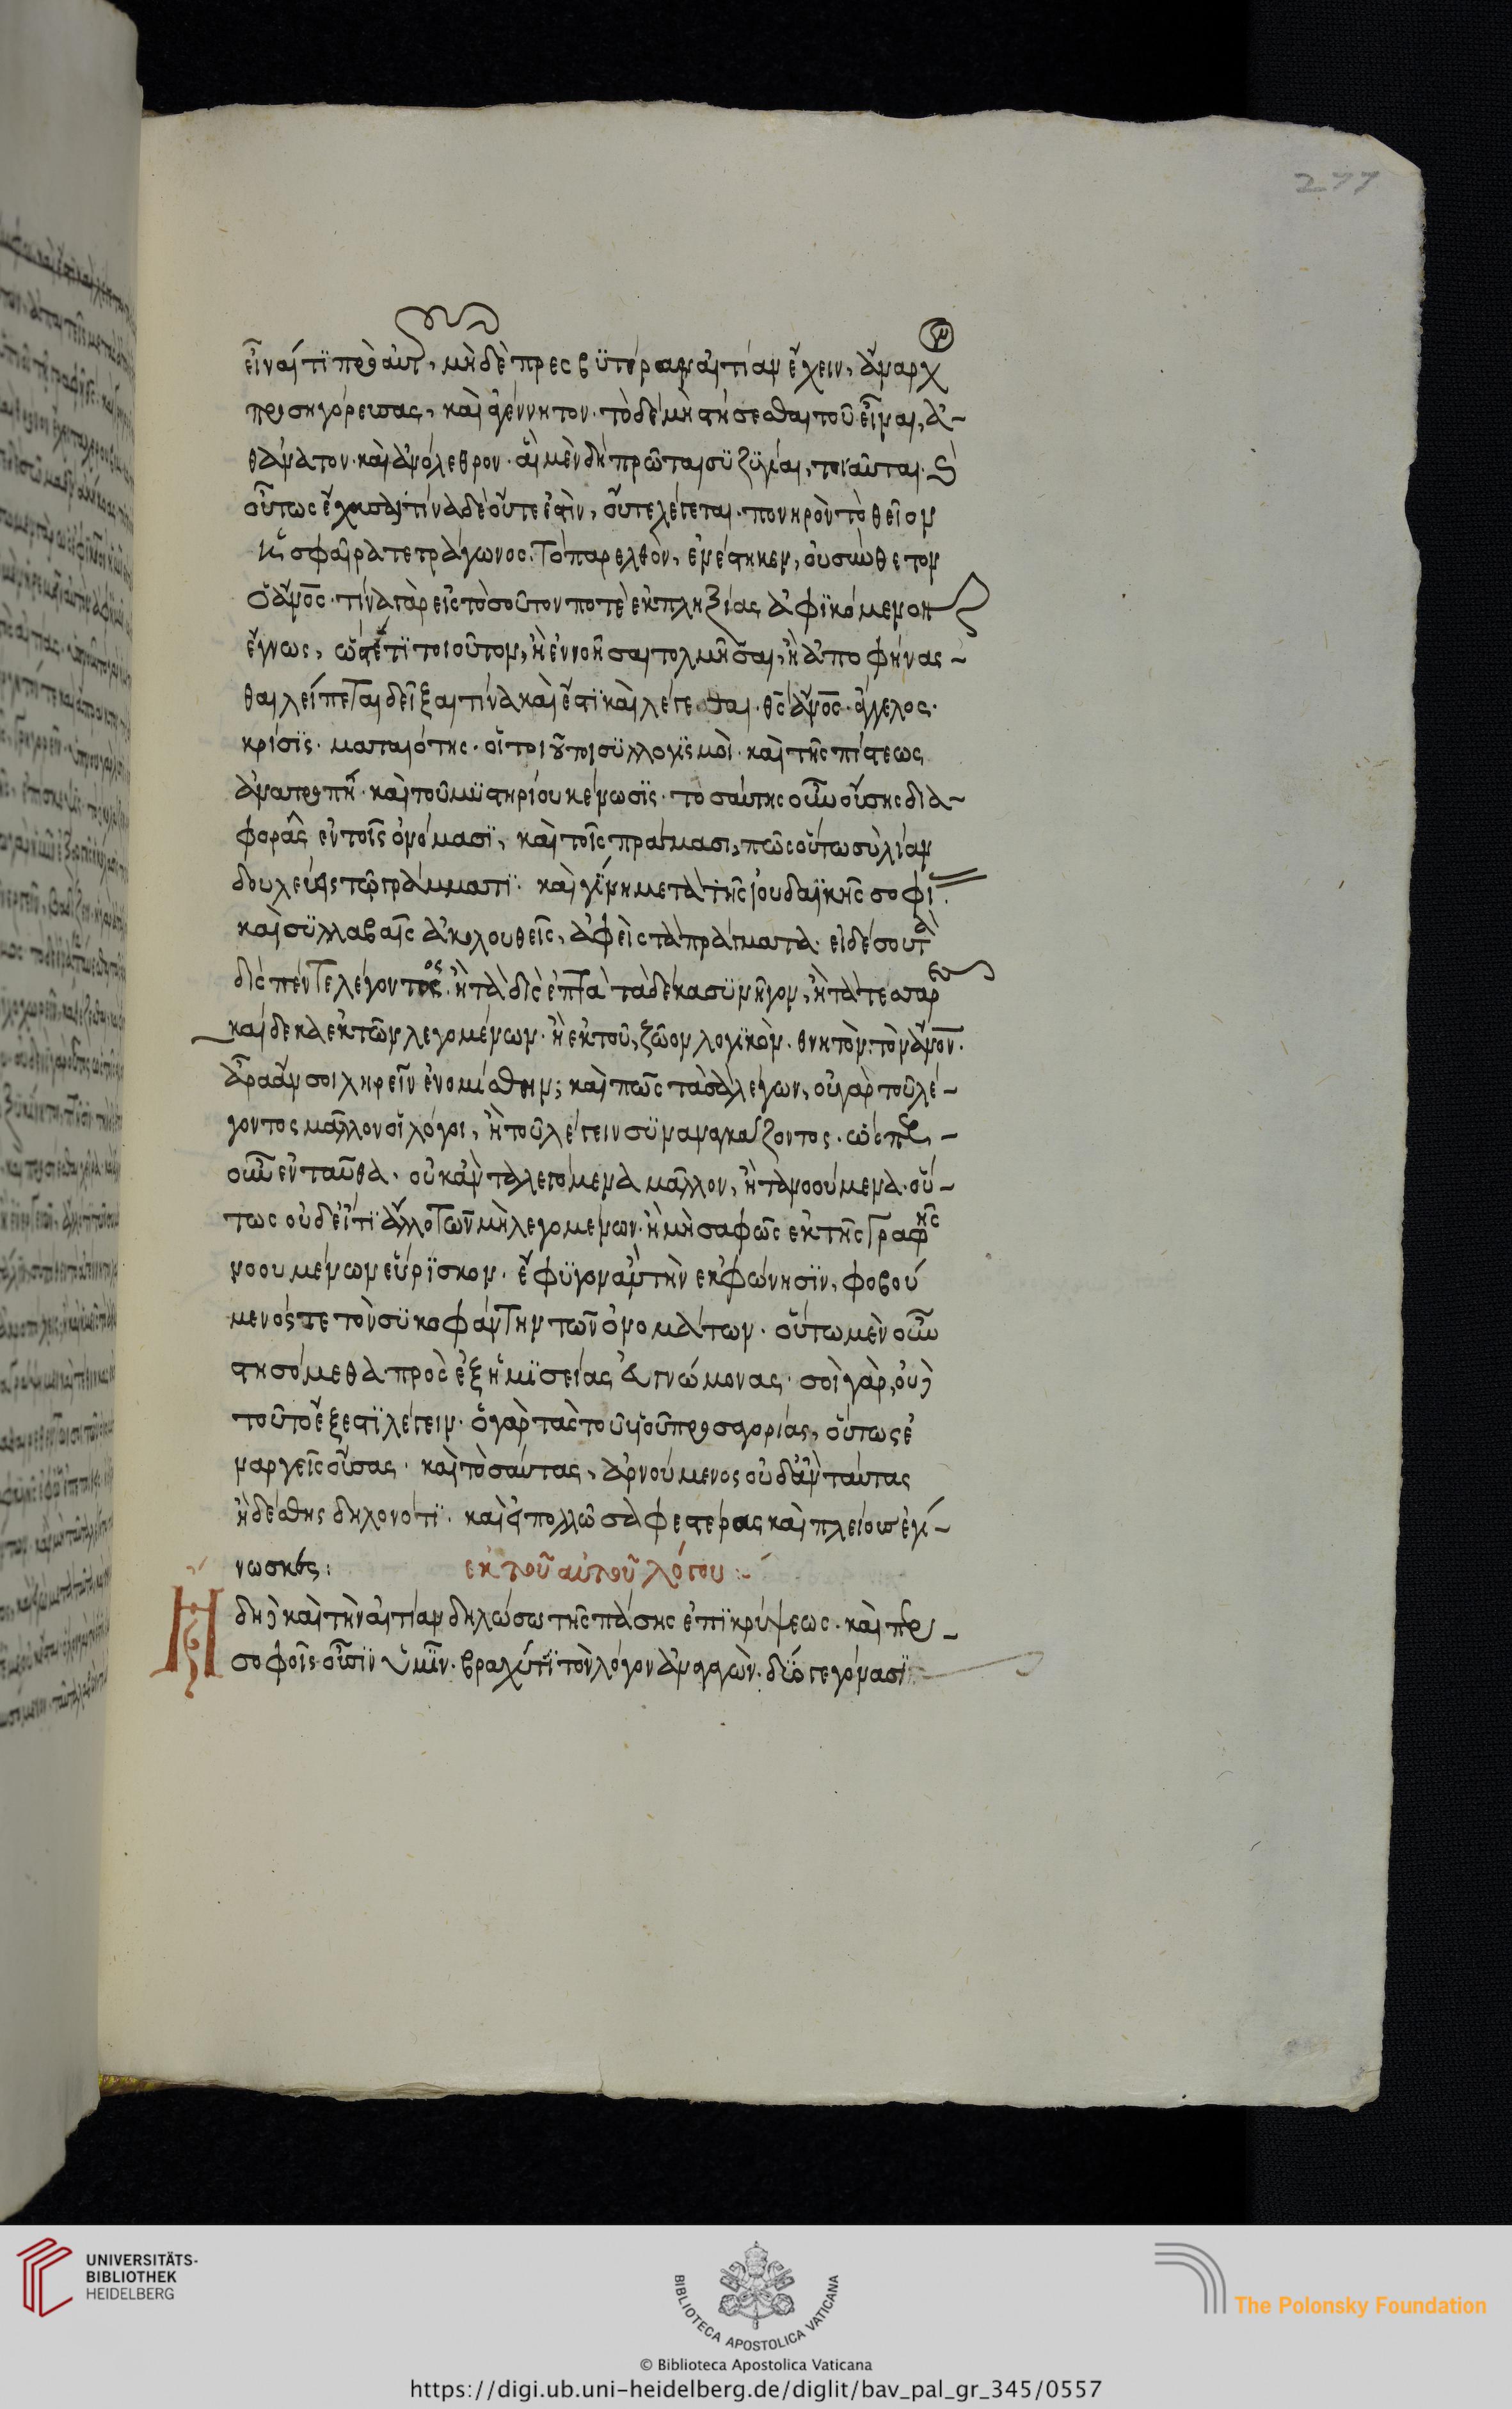 277
εἶναί τϊ πρὸ αὐτ, μὴδὲ πρεσβϋτέραν αἰτίαν ἔχειν, ἄναρχον
προσηγόρευσας, καὶ ἀγέννητον· τὸ δὲ μὴ στήσεσθαι τοῦ εἶναι, ἀ-
θάνατον· καὶ ἀνόλεθρον· αἱ μὲν δὴ πρῶται συζϋγίαι, τοιαῦται·
οὕτως ἔχουσαι· τίνα δὲ οὔτε ἐστὶν, οὔτε λέγεται· πονηρὸν τὸ θεῖον
ἡ σφαῖρα τετράγωνος· τὸ παρελθὸν, ἐνέστηκεν, οὐ σύνθετον
ὁ ἄνος· τίνα γὰρ εἰς τὸσοῦτον ποτὲ ἐκπληξίας ἀφϊκόμενον
ἔγνως, ὥστέ τϊ τοιοῦτον, ἢ ἐννοῆσαι τολμῆσαι, ἢ ἀποφήνας-
θαι λείπεται δεῖξαι τίνα καὶ ἔστϊ καὶ λέγεται· θς ἄνος· ἄγγελος·
κρίσϊς· ματαιότης· οἱ τοιοῦτοι συλλογϊσμοὶ· καὶ τῆς πίστεως
ἀνατροπὴ· καὶ τοῦ μϋστηρίου κένωσϊς· τοσαύτης οὖν οὔσης δια-
φορᾶς ἐν τοῖς ὀνόμασϊ, καὶ τοῖς πράγμασι, πῶς οὕτω σὺ λίαν
δουλεύεις τῷ γράμματϊ· καὶ γίνη μετὰ τῆς ἰουδαϊκῆς σοφί.
καὶ συλλαβαῖς ἀκολουθεῖς, ἀφεὶς τὰ πράγματα· εἰ δέ σου τὰ
δὶς πέντε λέγοντος· ἢ τὰ δὶς ἑπτὰ τὰ δέκα συνῆγον, ἢ τὰ τεσσαρ
καίδεκα ἐκ τῶν λεγομένων· ἢ ἐκ τοῦ, ζῶον λογϊκὸν· θνητὸν· τὸν ἄνον·
ἆρα ἄν σοι ληρεῖν ἐνομίσθην; καὶ πῶς τὰ σὰ λέγων, οὐ γὰρ τοῦ λέ-
γοντος μᾶλλον οἱ λόγοι, ἢ τοῦ λέγειν συναναγκάζοντος· ὥσπερ-
οὖν ἐνταῦθα· οὐκ ἂν τὰ λεγόμενα μᾶλλον, ἢ τὰ νοούμενα· οὕ-
τως οὐδ εἴ τϊ ἄλλο τῶν μὴ λεγομένων· ἢ μὴ σαφῶς ἐκ τῆς γραφῆς
νοουμένων εὕρϊσκον· ἔφϋγον ἂν τὴν ἐκφώνησϊν, φοβού
μενός τε τὸν συκοφάντην τῶν ὀνομάτων· οὕτω μὲν οὖν
στησόμεθα πρὸς ἐξ ἡμϊσείας ἀγνώμονας· σοὶ γὰρ, οὐδὲ
τοῦτο ἔξεστϊ λέγειν· ὁ γὰρ τὰς τοῦ υἱοῦ προσηγορίας, οὕτως ἐ
ναργεῖς οὔσας· καὶ τοσαύτας, ἀρνούμενος οὐδ ἂν ταύτας
ἠδέσθης δηλονότϊ· καὶ εἰ πολλῶ σαφεστέρας καὶ πλείους ἐγί-
νωσκες:
ἐκ τοῦ αὐτοῦ λόγου:-
Ἤδη καὶ τὴν αἰτίαν δηλώσω τῆς πάσης ἐπϊκρύψεως· καὶ περ-
σοφοῖς οὖσϊν ὑμῖν· βραχύ τϊ τὸν λόγον ἀναγαγὼν· διό γεγόνασϊ
UNIVERSITÄTS-
BIBLIOTHEK
HEIDELBERG
BIBLIOTECA APOSTOLICA VATICANA
The Polonsky Foundation
© Biblioteca Apostolica Vaticana
https://digi.ub.uni-heidelberg.de/diglit/bav_pal_gr_345/0557